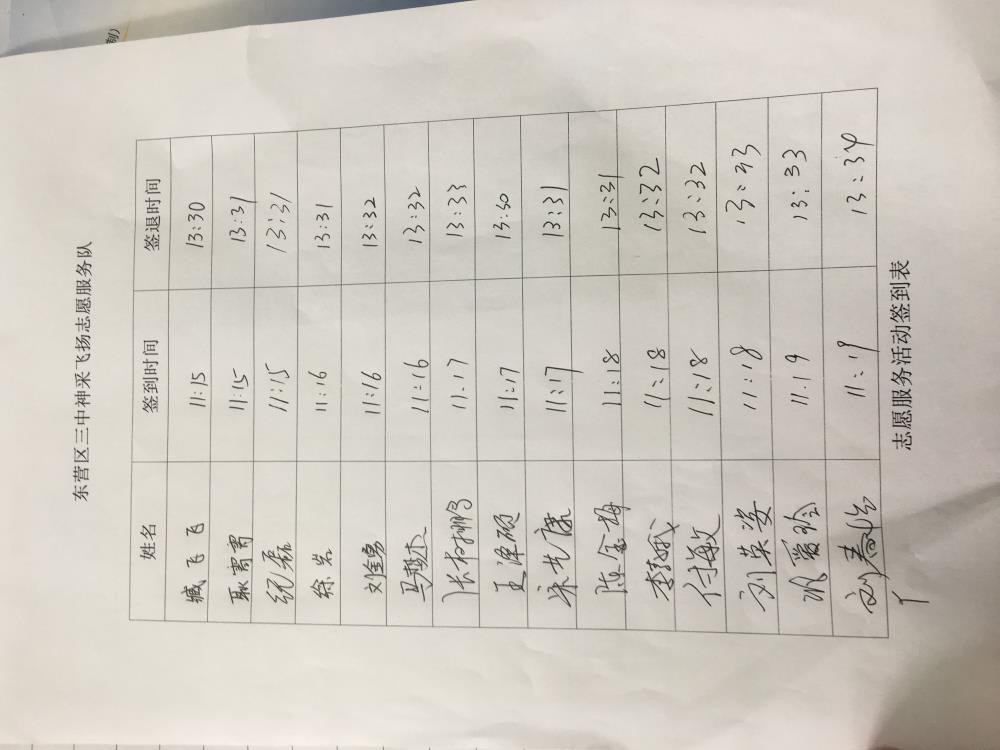 东营区三中神采飞扬志愿服务队
姓名 签到时间 签退时间
臧飞飞 11:15 13:30
耿寄寄 11:15 13:31
纪磊 11:15 13:31
徐岩 11:16 13:31
刘 11:16 13:32
马 11:16 13:32
张 11:17 13:33
王泽硕 11:17 13:30
宋先康 11:17 13:31
陈金梅 11:18 13:31
李 11:18 13:32
付敏 11:18 13:32
刘英姿 11:18 13:33
巩爱玲 11:19 13:33
刘春 11:19 13:34
志愿服务活动签到表